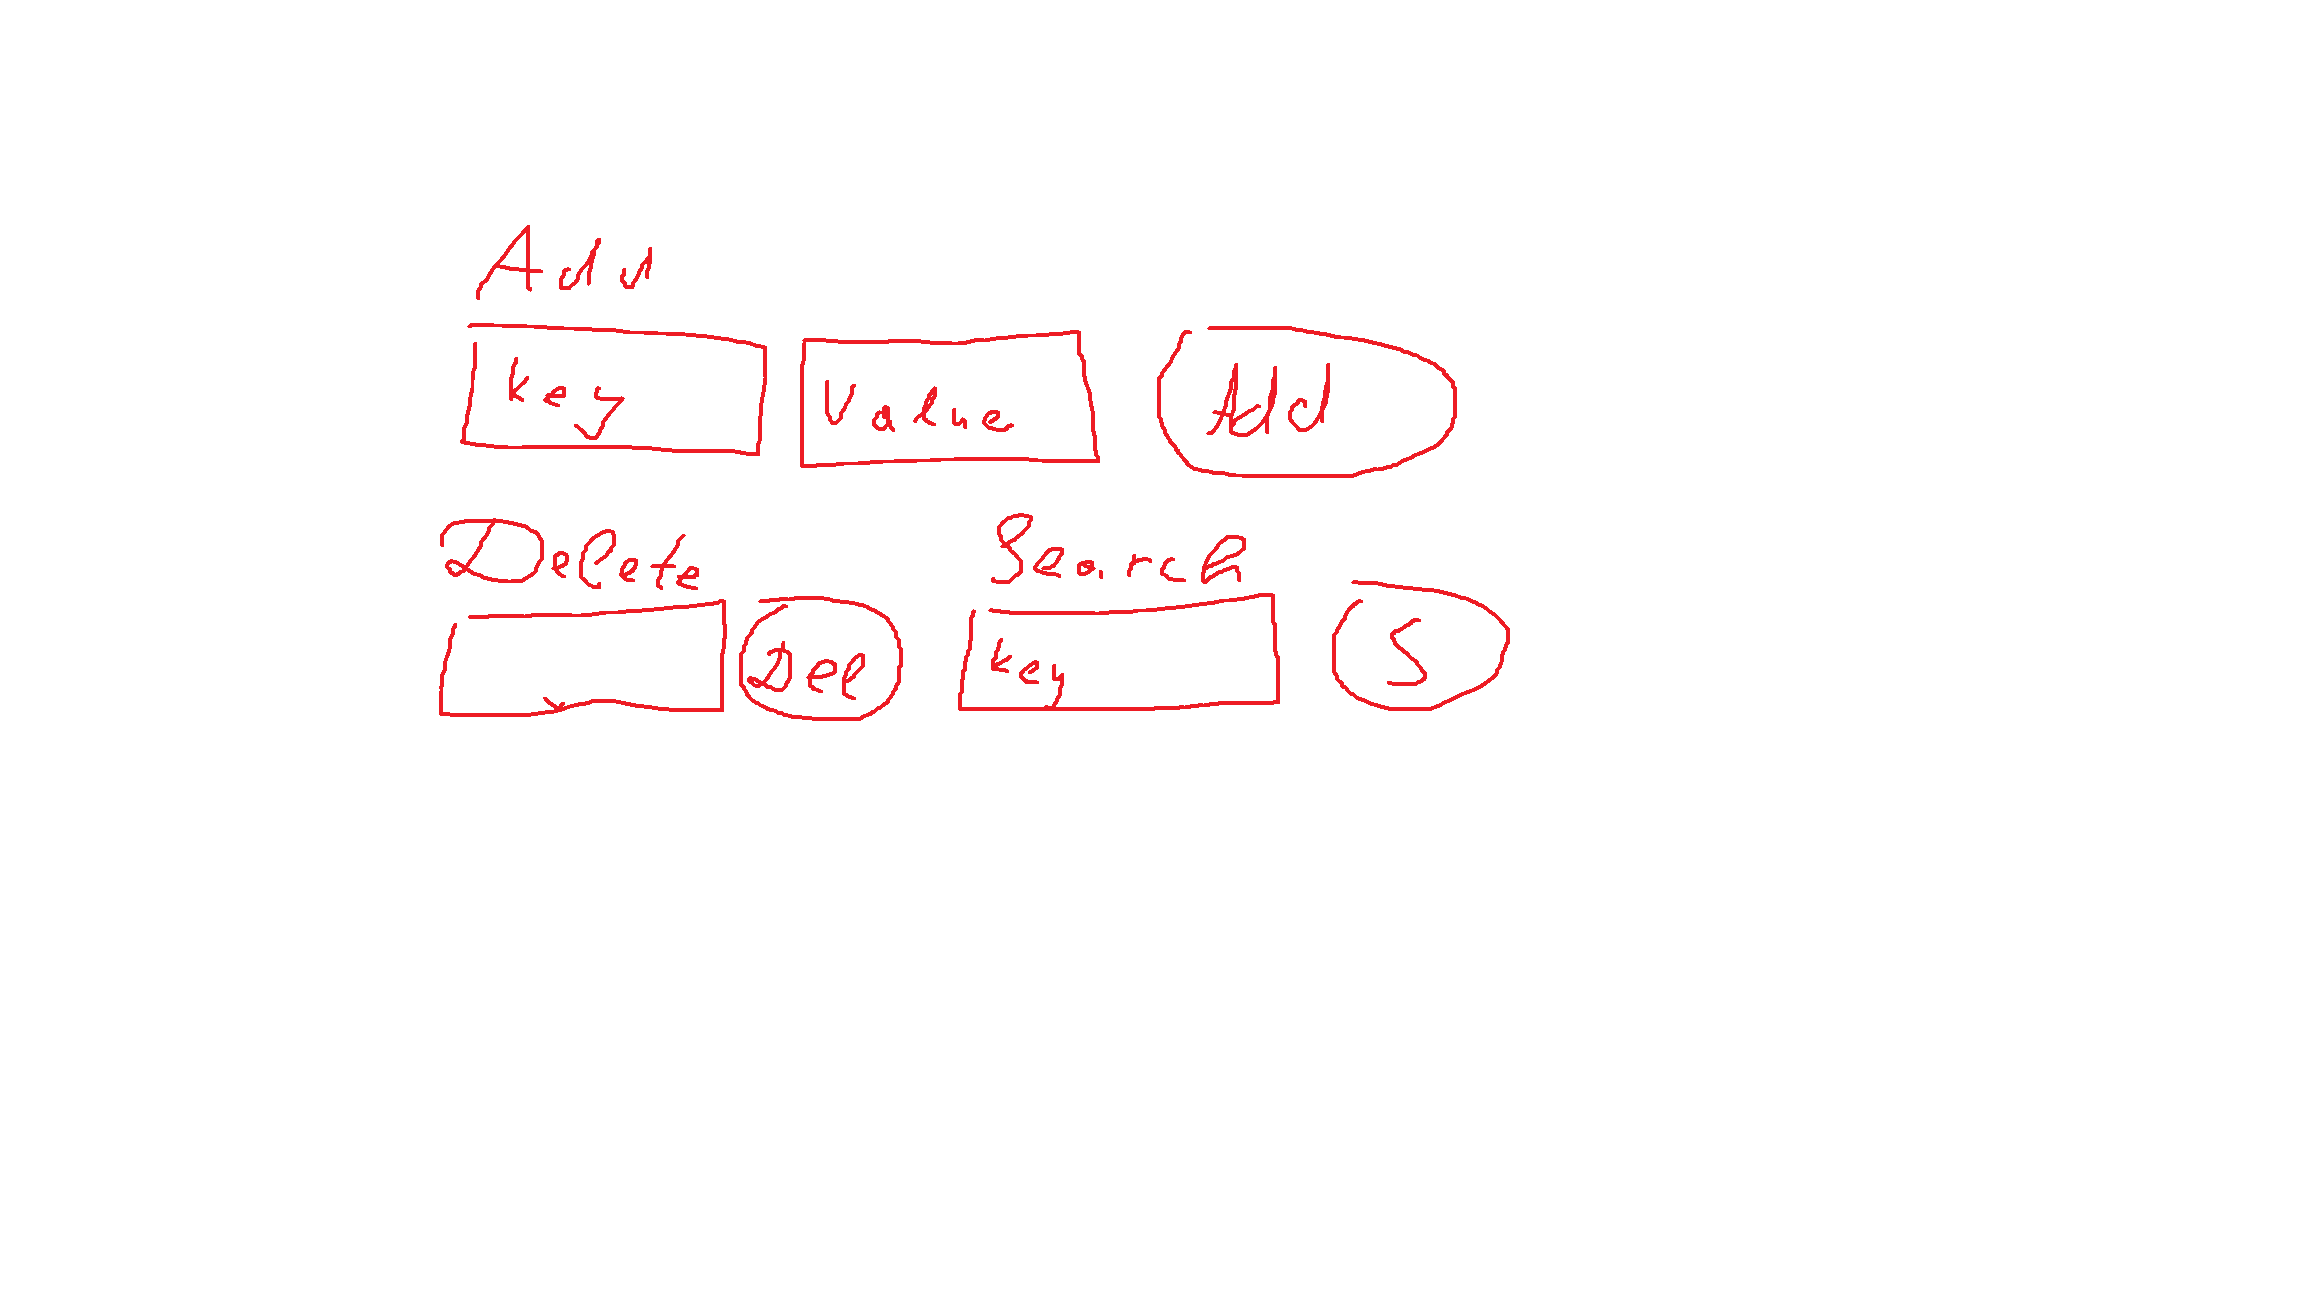 Add
key Value Add
Delete Search
Del key S